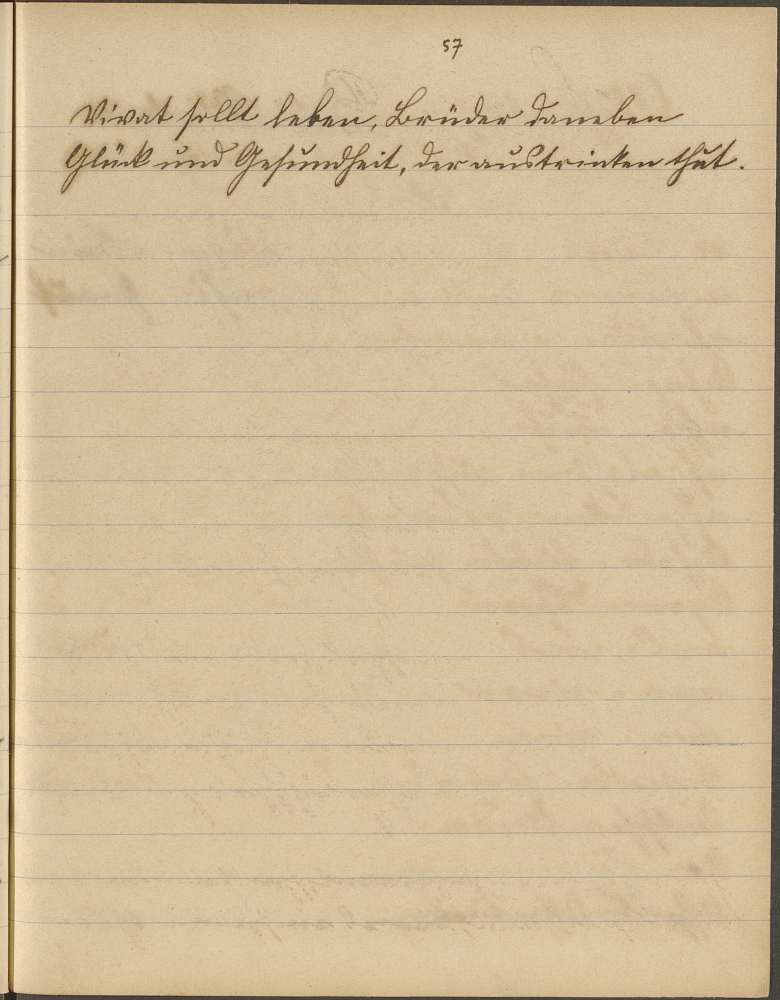 57
Vivat sollt leben, Brüder daneben
Glück und Gesundheit, der austrinken thut.